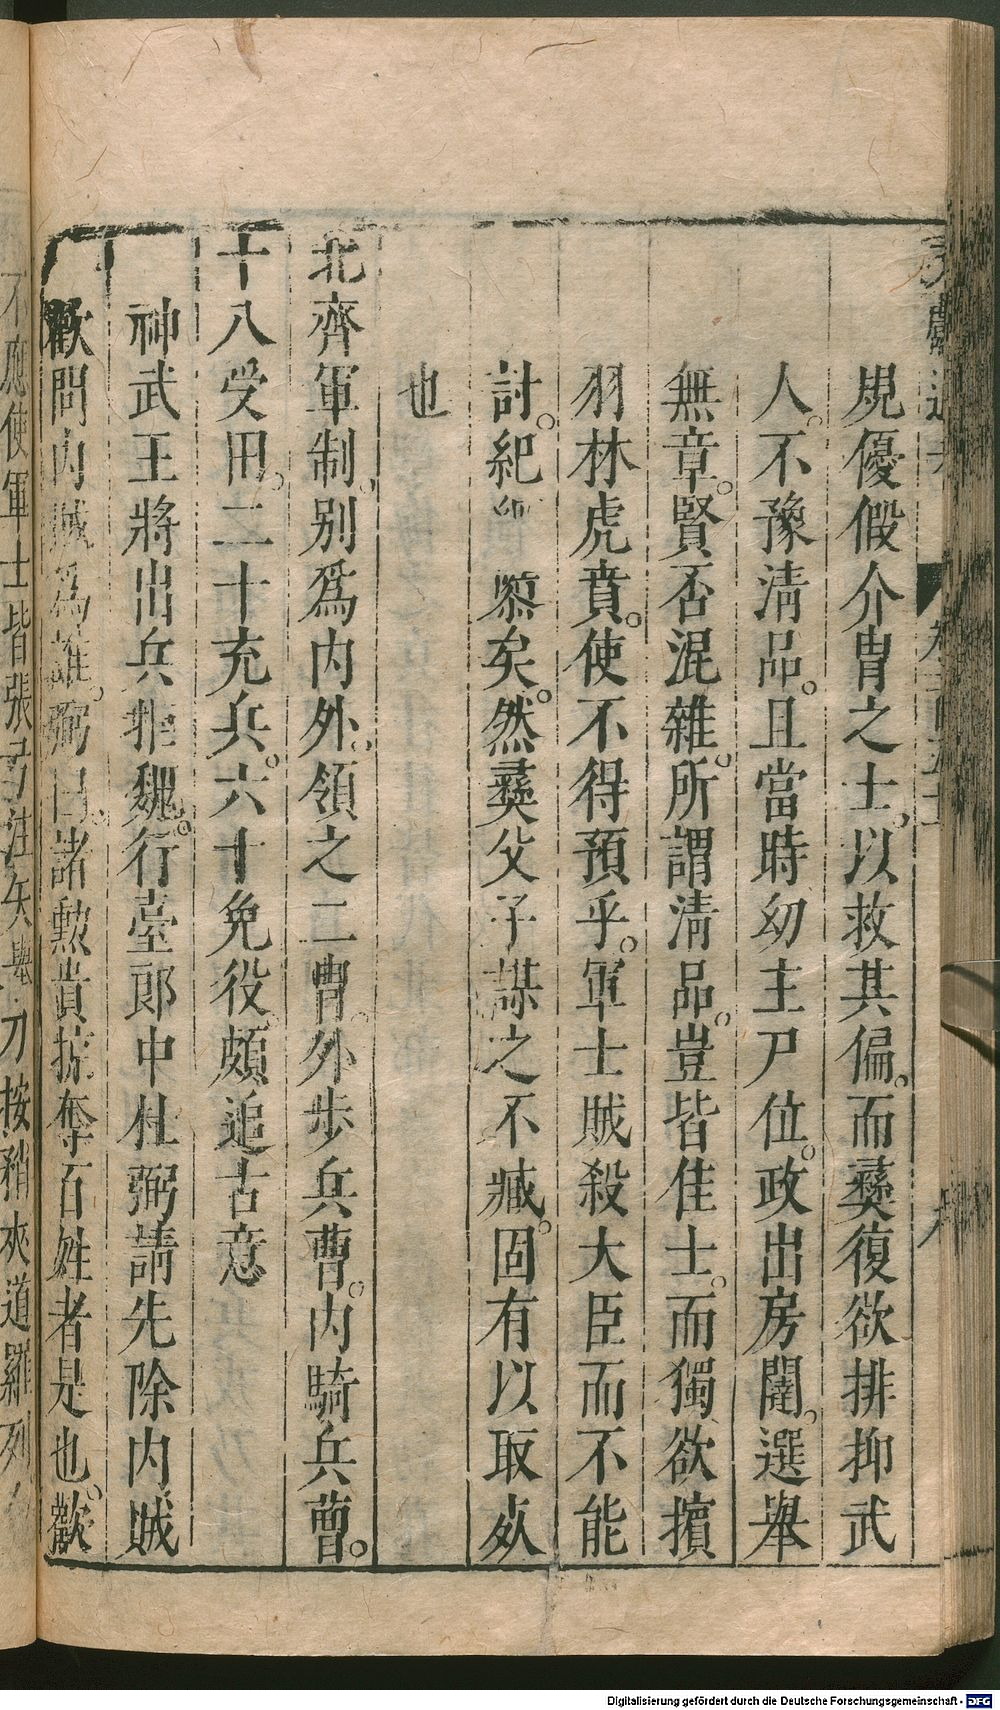 規優假介冑之士以救其偏。而彝復欲排抑武
人。不豫清品。且當時幼主尸位。政出房闥。選舉
無章。賢否混雜。所謂清品。豈皆佳士。而獨欲擯
羽林虎賁。使不得預乎。軍士賊殺大臣而不能
討。紀綱隳矣。然彝父子謀之不臧。固有以取㱙
也
北齊軍制。別爲内外。領之二曹。外步兵曹。内騎兵曹。
十八受田。二十充兵。六十免役。頗追古意
神武王將出兵拒魏。行臺郎中杜弼請先除内賊
歡問内賊爲誰。弼曰。諸勲貴掠奪百姓者是也。歡
不應使軍士皆張弓注矢舉刀按矟夾道羅列
Digitalisierung gefördert durch die Deutsche Forschungsgemeinschaft - DFG